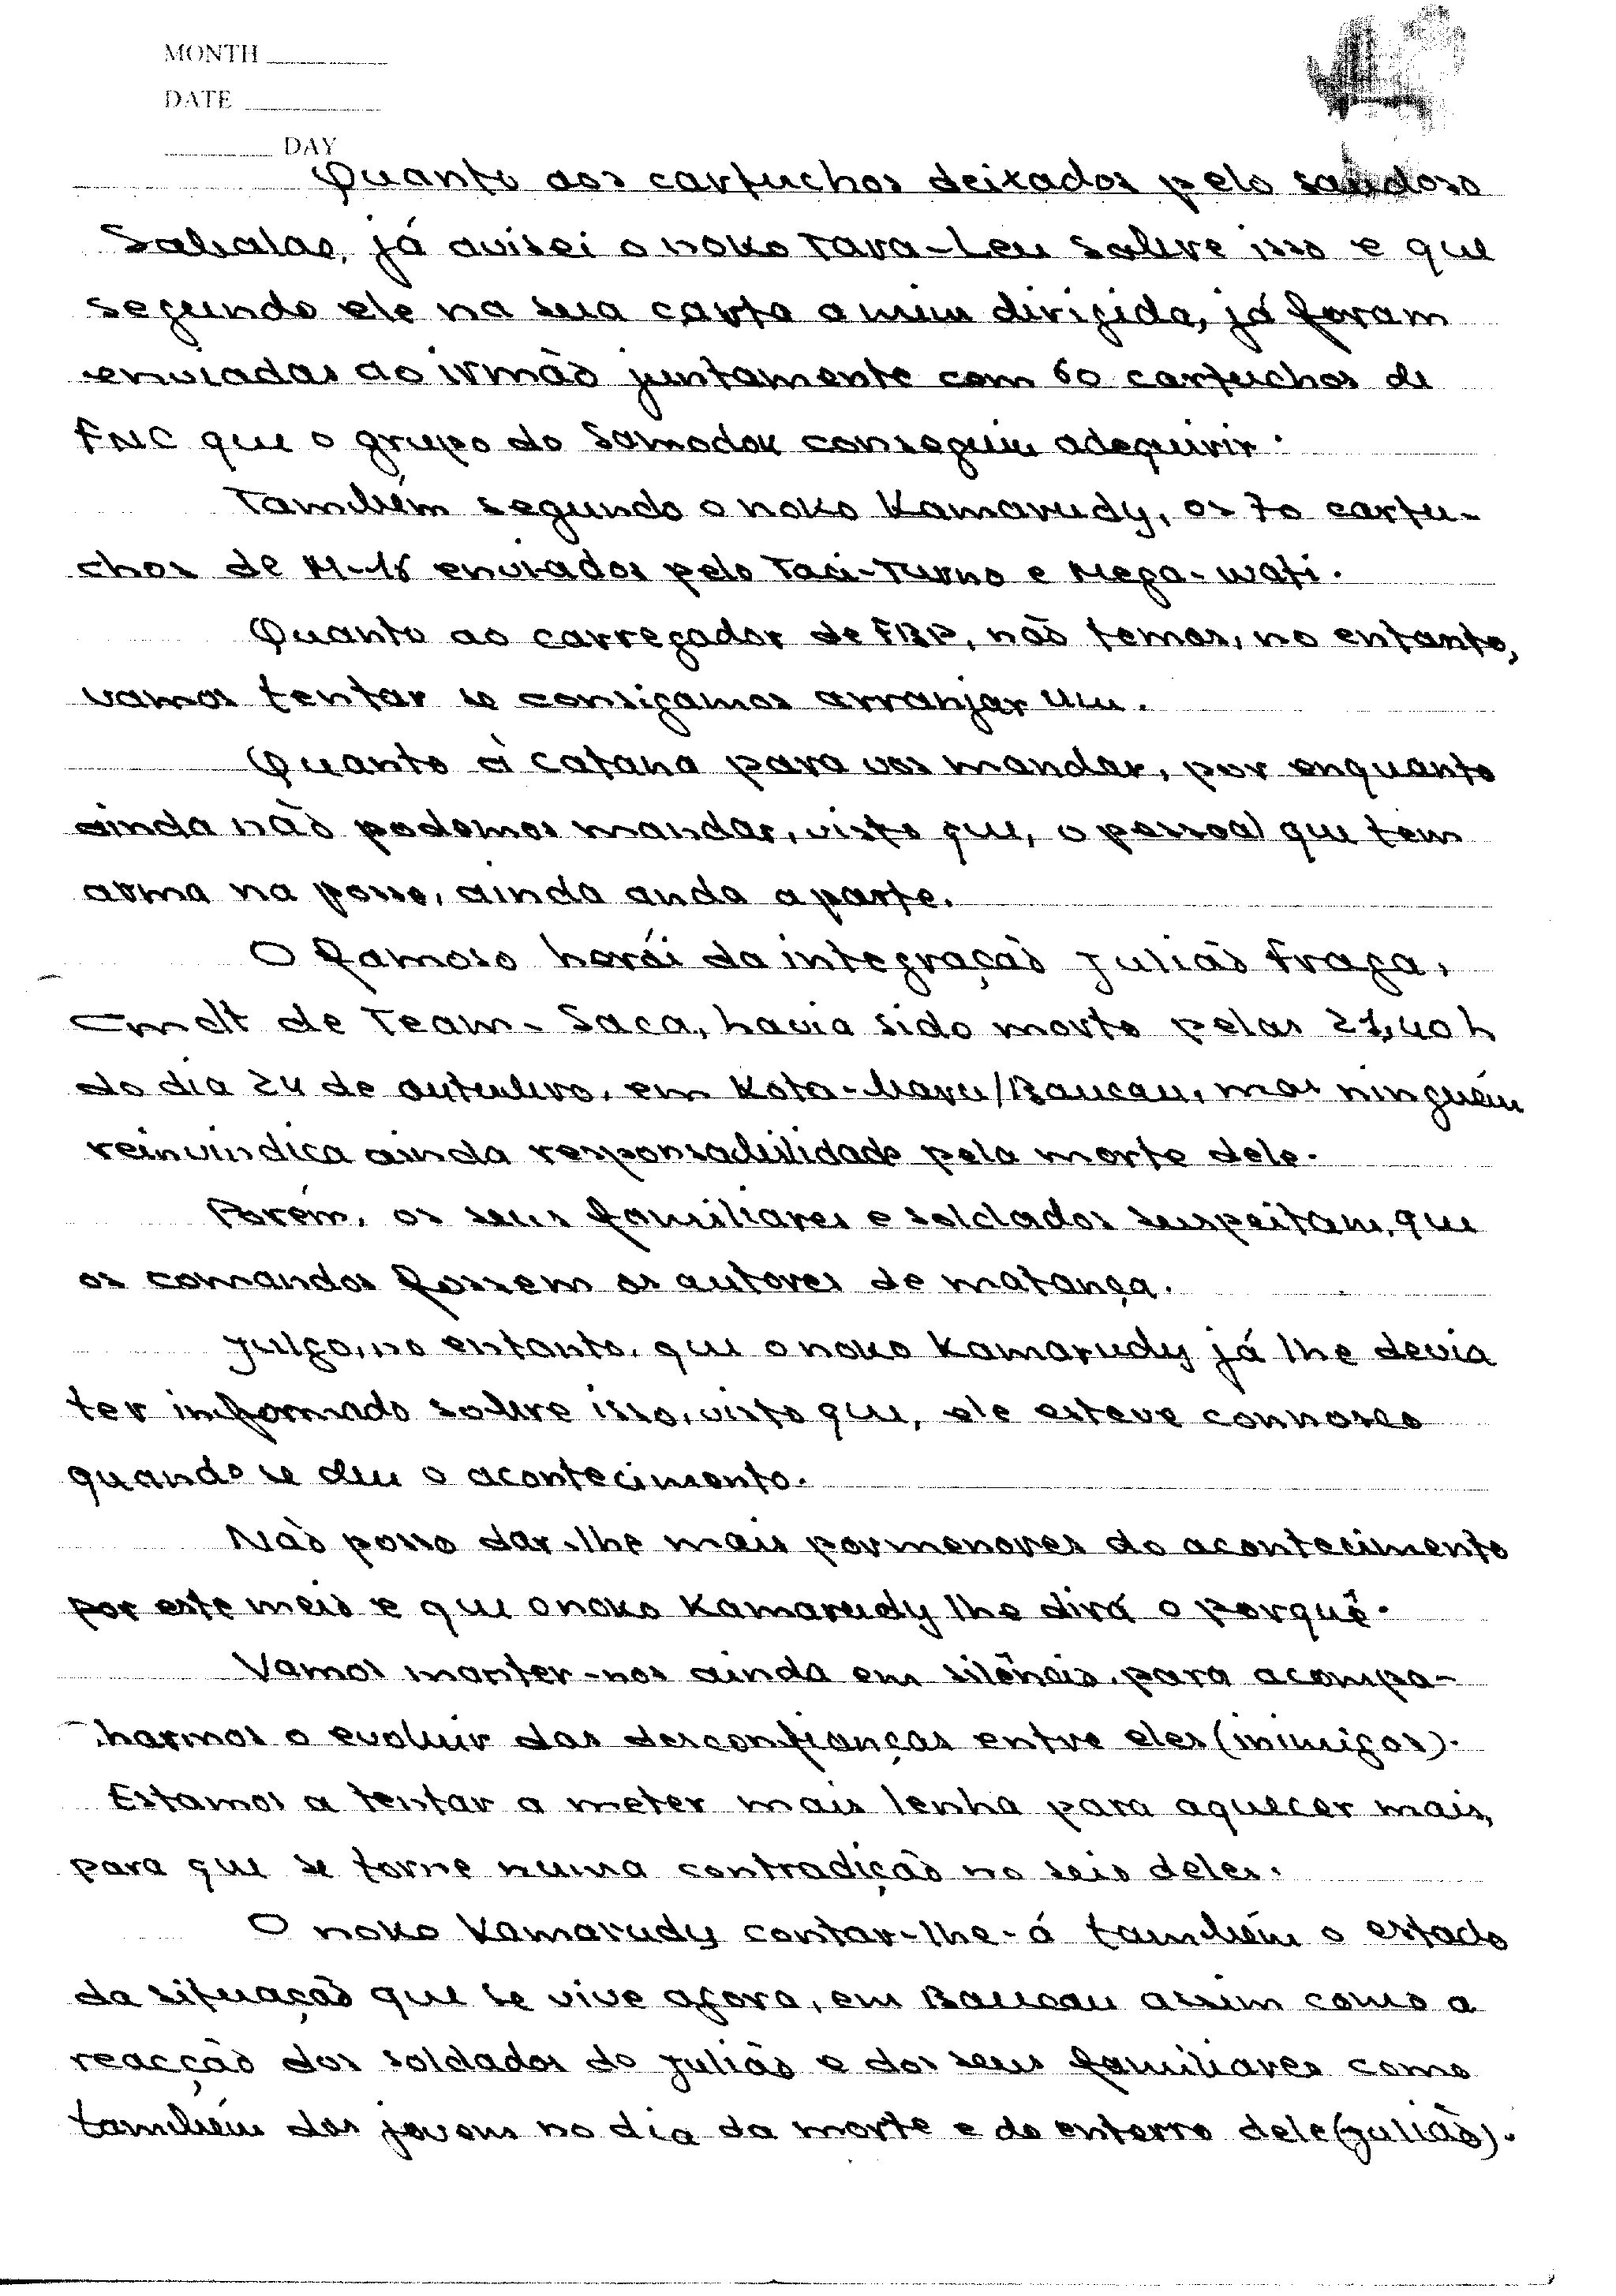 MONTH
DATE
DAY
Quanto aos cartuchos deixados pelo saudoso
Sabalae, já avisei o noko Tara-Leu sobre isso e que
segundo ele na sua carta a mim dirigida, já foram
enviadas ao irmão juntamente com 60 cartuchos de
FNC que o grupo do Samodok conseguiu adequirir.
Também segundo o noko Kamarudy, os 70 cartu-
chos de M-16 enviados pelo Taci-Turno e Mega-wati.
Quanto ao carregador de FBP, não temos, no entanto,
vamos tentar se consigamos arranjar um.
Quanto à catana para vos mandar, por enquanto
ainda não podemos mandar, visto que, o pessoal que tem
arma na posse, ainda anda a parte.
O famoso herói da integração Julião Fraga,
Cmdt de Team-Saca, havia sido morto pelas 21,40 h
do dia 24 de outubro, em Kota-baru/Baucau, mas ninguém
reinvindica ainda responsabilidade pela morte dele.
Porém, os seus familiares e soldados suspeitam, que
os comandos fossem os autores de matança.
Julgo, no entanto, que o noko Kamarudy já lhe devia
ter informado sobre isso, visto que, ele esteve connosco
quando se deu o acontecimento.
Não posso dar-lhe mais pormenores do acontecimento
por este meio e que o noko Kamarudy lhe dirá o porquê.
Vamos manter-nos ainda em silêncio, para acompa-
-harmos o evoluir das desconfianças entre eles (inimigos).
Estamos a tentar a meter mais lenha para aquecer mais,
para que se torne numa contradição no seio deles.
O noko Kamarudy contar-lhe-á também o estado
da situação que se vive agora, em Baucau assim como a
reacção dos soldados do Julião e dos seus familiares como
também dos jovens no dia da morte e do enterro dele (Julião).